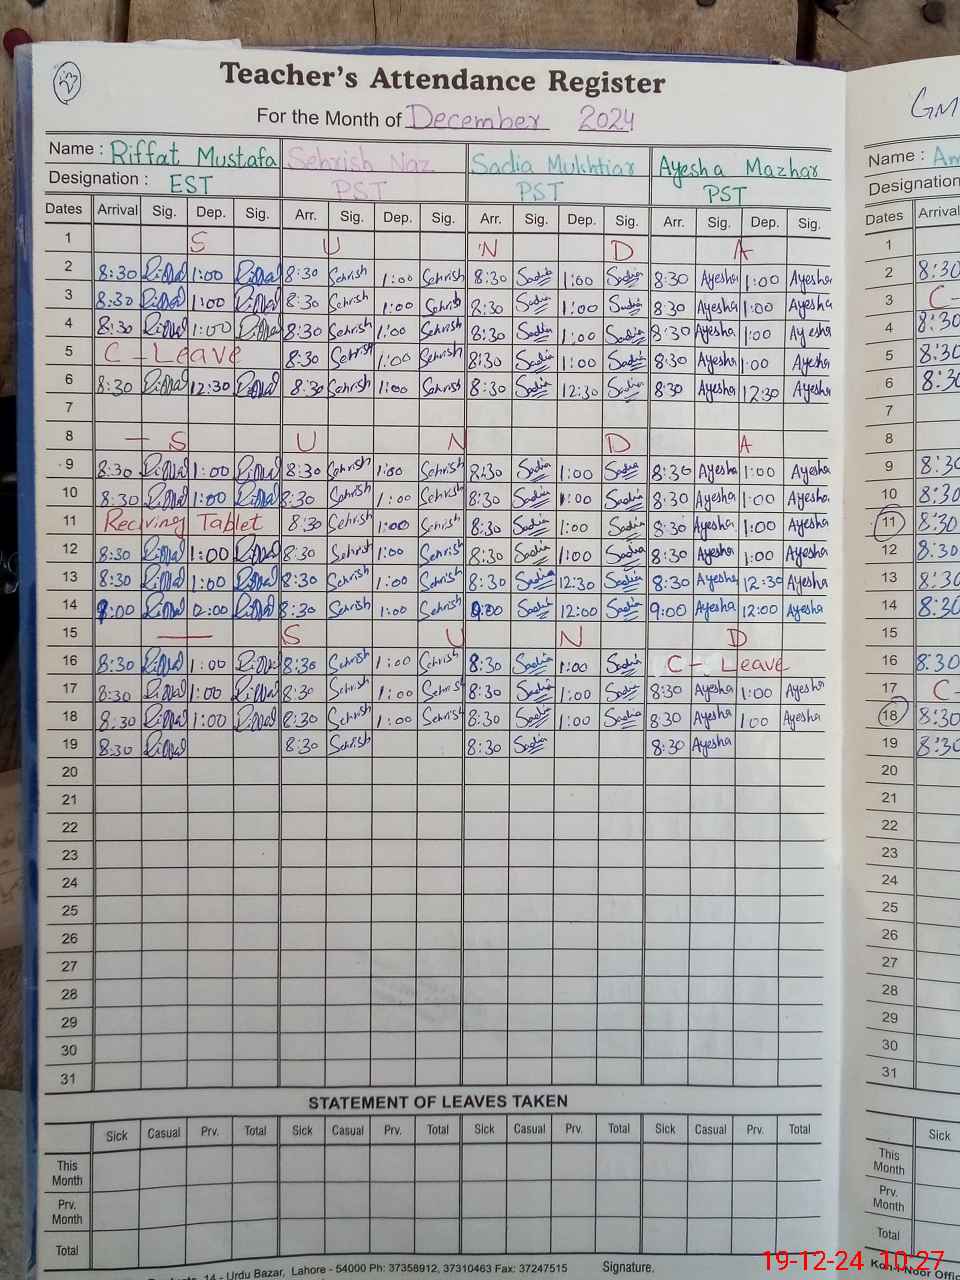 Teacher's Attendance Register
For the Month of December 2024
GM
Name : Riffat Mustafa Sehrish Naz Sadia Mukhtiar Ayesha Mazhar Name : Am
Designation : EST PST PST PST Designation
Dates Arrival Sig. Dep. Sig. Arr. Sig. Dep. Sig. Arr. Sig. Dep. Sig. Arr. Sig. Dep. Sig. Dates Arrival
1 S U N D A 1
2 8:30 Riffat 1:00 Riffat 8:30 Sehrish 1:00 Sehrish 8:30 Sadia 1:00 Sadia 8:30 Ayesha 1:00 Ayesha 2 8:30
3 8:30 Riffat 1:00 Riffat 8:30 Sehrish 1:00 Sehrish 8:30 Sadia 1:00 Sadia 8:30 Ayesha 1:00 Ayesha 3 C-
4 8:30 Riffat 1:00 Riffat 8:30 Sehrish 1:00 Sehrish 8:30 Sadia 1:00 Sadia 8:30 Ayesha 1:00 Ayesha 4 8:30
5 C - Leave 8:30 Sehrish 1:00 Sehrish 8:30 Sadia 1:00 Sadia 8:30 Ayesha 1:00 Ayesha 5 8:30
6 8:30 Riffat 12:30 Riffat 8:30 Sehrish 1:00 Sehrish 8:30 Sadia 12:30 Sadia 8:30 Ayesha 12:30 Ayesha 6 8:30
7 7
8 — S U N D A 8
9 8:30 Riffat 1:00 Riffat 8:30 Sehrish 1:00 Sehrish 8:30 Sadia 1:00 Sadia 8:30 Ayesha 1:00 Ayesha 9 8:30
10 8:30 Riffat 1:00 Riffat 8:30 Sehrish 1:00 Sehrish 8:30 Sadia 1:00 Sadia 8:30 Ayesha 1:00 Ayesha 10 8:30
11 Reciving Tablet 8:30 Sehrish 1:00 Sehrish 8:30 Sadia 1:00 Sadia 8:30 Ayesha 1:00 Ayesha 11 8:30
12 8:30 Riffat 1:00 Riffat 8:30 Sehrish 1:00 Sehrish 8:30 Sadia 1:00 Sadia 8:30 Ayesha 1:00 Ayesha 12 8:30
13 8:30 Riffat 1:00 Riffat 8:30 Sehrish 1:00 Sehrish 8:30 Sadia 12:30 Sadia 8:30 Ayesha 12:30 Ayesha 13 8:30
14 9:00 Riffat 12:00 Riffat 8:30 Sehrish 1:00 Sehrish 9:00 Sadia 12:00 Sadia 9:00 Ayesha 12:00 Ayesha 14 8:30
15 — S U N D 15
16 8:30 Riffat 1:00 Riffat 8:30 Sehrish 1:00 Sehrish 8:30 Sadia 1:00 Sadia C - Leave 16 8:30
17 8:30 Riffat 1:00 Riffat 8:30 Sehrish 1:00 Sehrish 8:30 Sadia 1:00 Sadia 8:30 Ayesha 1:00 Ayesha 17 C-
18 8:30 Riffat 1:00 Riffat 8:30 Sehrish 1:00 Sehrish 8:30 Sadia 1:00 Sadia 8:30 Ayesha 1:00 Ayesha 18 8:30
19 8:30 Riffat 8:30 Sehrish 8:30 Sadia 8:30 Ayesha 19 8:30
20 20
21 21
22 22
23 23
24 24
25 25
26 26
27 27
28 28
29 29
30 30
31 31
STATEMENT OF LEAVES TAKEN
Sick Casual Prv. Total Sick Casual Prv. Total Sick Casual Prv. Total Sick Casual Prv. Total Sick
This Month This Month
Prv. Month Prv. Month
Total Total
14 - Urdu Bazar, Lahore - 54000 Ph: 37358912, 37310463 Fax: 37247515 Signature. Koh-i-Noor Offi
19-12-24 10:27